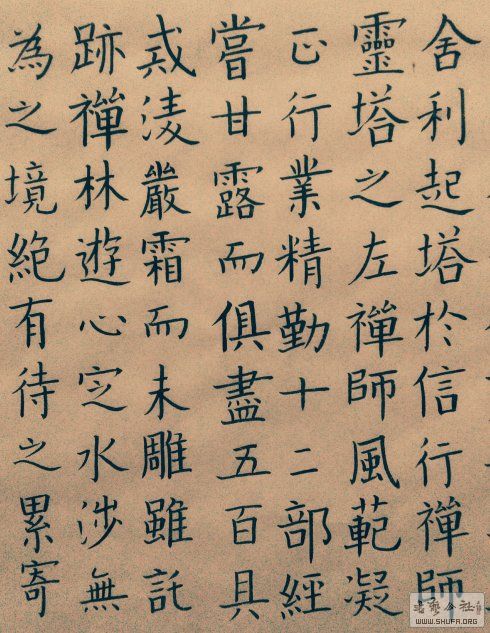 舍利起塔於信行禪師
靈塔之左禪師風範凝
正行業精勤十二部經
嘗甘露而俱盡五百具
戒凌嚴霜而未雕雖託
跡禪林遊心定水涉無
為之境絕有待之累寄
书艺公社
WWW.SHUFA.ORG